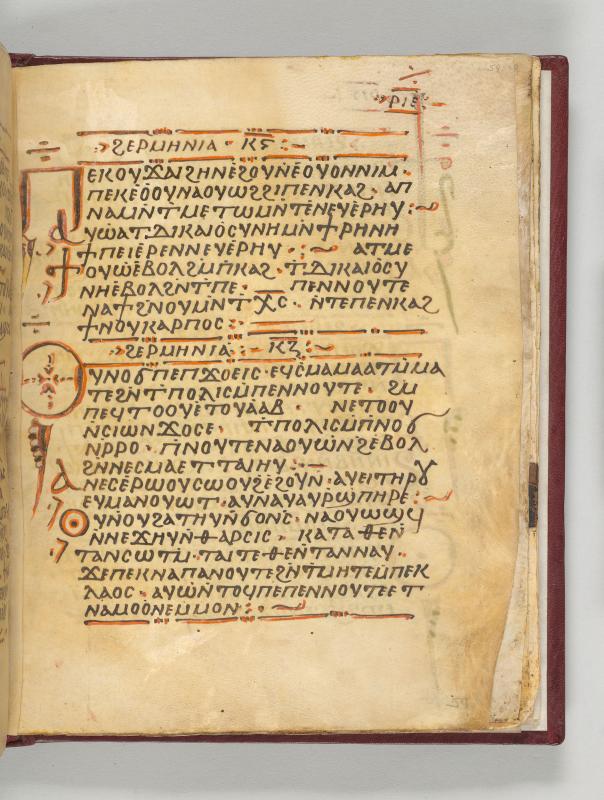 ⲣⲓⲉ
ϩⲉⲣⲙⲏⲛⲓⲁ ⲕⲋ
ⲡⲉⲕⲟⲩϫⲁⲓ ϩⲏⲛ ⲉϩⲟⲩⲛ ⲉⲟⲩⲟⲛ ⲛⲓⲙ
ⲡⲉⲕⲉⲟⲟⲩ ⲛⲁⲟⲩⲱϩ ϩⲓ ⲡⲉⲛⲕⲁϩ · ⲁⲡ
ⲛⲁ ⲙⲛ ⲧⲙⲉ ⲧⲱⲙⲛⲧ ⲉⲛⲉⲩⲉⲣⲏⲩ
ⲁⲩⲱ ⲁⲧⲇⲓⲕⲁⲓⲟⲥⲩⲛⲏ ⲙⲛ ϯⲣⲏⲛⲏ
ϯⲡⲉⲓ ⲉⲣⲉⲛ ⲛⲉⲩⲉⲣⲏⲩ · ⲁⲧⲙⲉ
ⲟⲩⲱ ⲉⲃⲟⲗ ϩⲙ ⲡⲕⲁϩ · ⲧⲇⲓⲕⲁⲓⲟⲥⲩ
ⲛⲏ ⲉⲃⲟⲗ ϩⲛ ⲧⲡⲉ · ⲡⲉⲛⲛⲟⲩⲧⲉ
ⲛⲁϯ ϩⲛⲟⲩⲙⲛⲧⲭⲥ · ⲛⲧⲉ ⲡⲉⲛⲕⲁϩ
ϯ ⲛⲟⲩⲕⲁⲣⲡⲟⲥ
ϩⲉⲣⲙⲏⲛⲓⲁ ⲕⲍ
ⲟⲩⲛⲟϭ ⲡⲉ ⲡϫⲟⲉⲓⲥ ⲉϥⲥⲙⲁⲙⲁⲁⲧ ⲙⲙⲁ
ⲧⲉ ϩⲛ ⲧⲡⲟⲗⲓⲥ ⲙⲡⲉⲛⲛⲟⲩⲧⲉ · ϩⲙ
ⲡⲉϥⲧⲟⲟⲩ ⲉⲧⲟⲩⲁⲁⲃ · ⲛⲉⲧⲟⲟⲩ
ⲛⲥⲓⲱⲛ ϫⲟⲥⲉ · ⲧⲡⲟⲗⲓⲥ ⲙⲡⲛⲟϭ
ⲛⲣⲣⲟ · ⲡⲛⲟⲩⲧⲉ ⲛⲁⲟⲩⲱⲛϩ ⲉⲃⲟⲗ
ϩⲛ ⲛⲉⲥⲙⲁ ⲉⲧⲧⲁⲓⲏⲩ
ⲁⲛⲉⲥⲉⲣⲱⲟⲩ ⲥⲱⲟⲩϩ ⲉϩⲟⲩⲛ · ⲁⲩⲉⲓ ⲧⲏⲣⲟⲩ
ⲉⲩⲙⲁ ⲛⲟⲩⲱⲧ · ⲁⲩⲛⲁⲩ ⲁⲩⲣϣⲡⲏⲣⲉ
ⲟⲩⲛⲟⲩϩⲁⲧⲏⲩ ⲛϭⲟⲛⲥ · ⲛⲁⲟⲩⲱϣϥ
ⲛⲛⲉϫⲏⲩ ⲛⲑⲁⲣⲥⲓⲥ · ⲕⲁⲧⲁ ⲑⲉ ⲛ
ⲧⲁⲛⲥⲱⲧⲙ · ⲧⲁⲓ ⲧⲉ ⲑⲉ ⲛⲧⲁⲛⲛⲁⲩ
ϫⲉ ⲡⲉⲕⲛⲁ ⲡⲁⲛⲟⲩⲧⲉ ϩⲛ ⲧⲙⲏⲧⲉ ⲙⲡⲉⲕ
ⲗⲁⲟⲥ · ⲁⲩⲱ ⲛⲧⲟϥ ⲡⲉ ⲡⲉⲛⲛⲟⲩⲧⲉ ⲉⲧ
ⲛⲁⲙⲟⲟⲛⲉ ⲙⲙⲟⲛ